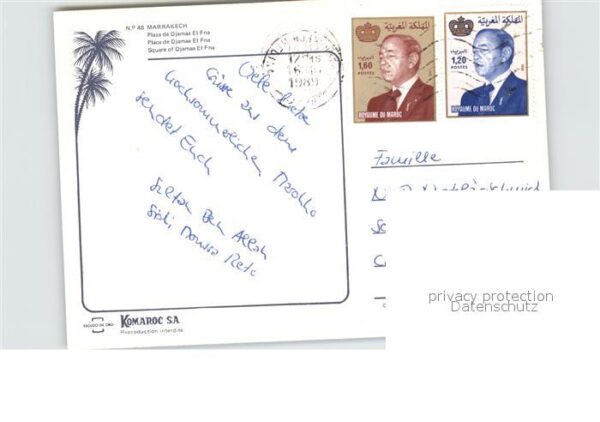 N.º 46 MARRAKECH
Plaza de Djamaa El Fna
Place de Djamaa El Fna
Square of Djamaa El Fna
1989
المملكة المغربية
1,60
POSTES
ROYAUME DU MAROC
المملكة المغربية
1,20
POSTES
ROYAUME DU MAROC
Viele liebe
Grüße aus dem
hochsommerlichen Marokko
sendet Euch
Sultan Ben Allah
Sidi
Famille
ESCUDO DE ORO
KOMAROC S.A.
Reproduction interdite
privacy protection
Datenschutz